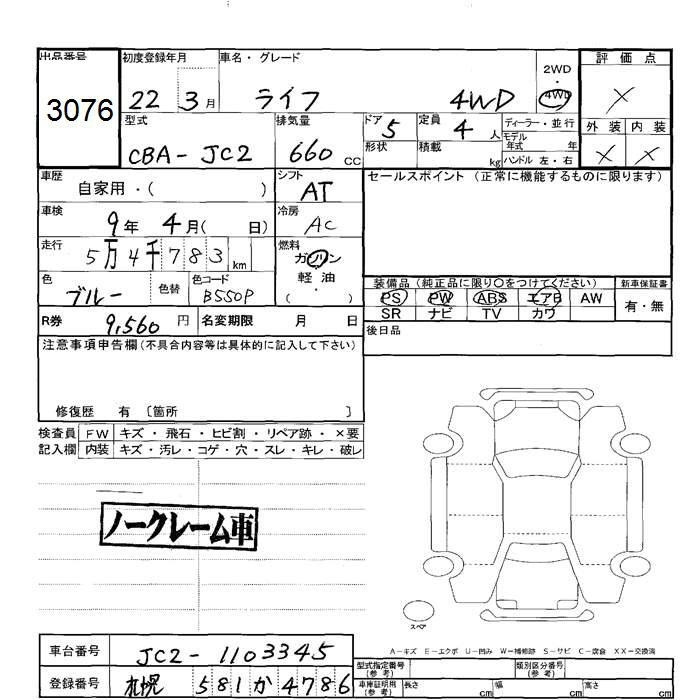 出品番号 初度登録年月 車名・グレード 評価点
3076 22 3月 ライフ 4WD 2WD・4WD ×
型式 排気量 ドア 5 定員 4人 ディーラー・並行 外装 内装
CBA-JC2 660 cc 形状 積載 kg モデル年式 年 × ×
ハンドル 左・右
車歴 自家用・( ) シフト AT セールスポイント (正常に機能するものに限ります)
車検 9年 4月( 日) 冷房 AC
走行 5万4千783km 燃料 ガソリン
軽油
( )
色 ブルー 色替 色コード B550P 装備品 (純正品に限り〇をつけてください) 新車保証書
PS PW ABS エアB AW 有・無
SR ナビ TV カワ
R券 9,560円 名変期限 月 日 後日品
注意事項申告欄(不具合内容等は具体的に記入して下さい)
修復歴 有 〔箇所 〕
検査員 FW キズ・飛石・ヒビ割・リペア跡・×要
記入欄 内装 キズ・汚レ・コゲ・穴・スレ・キレ・破レ
ノークレーム車
スペア
A-キズ E-エクボ U-凹み W-補修跡 S-サビ C-腐食 XX-交換済
車台番号 JC2-1103345
登録番号 札幌 581か4786
型式指定番号(参考) 類別区分番号(参考)
車庫証明用(参考) 長さ cm 幅 cm 高さ cm